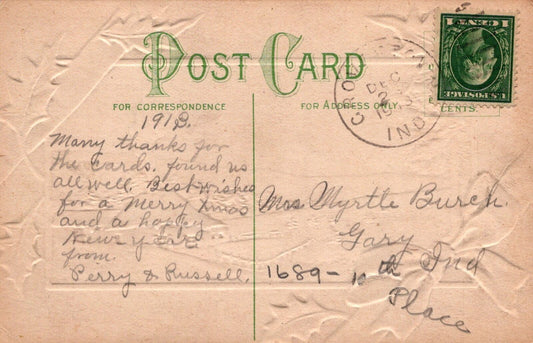 POST CARD
FOR CORRESPONDENCE
FOR ADDRESS ONLY.
1 CENT 1
U.S. POSTAGE
CENTS.
CROWN
DEC
IND
191
Many thanks for
the cards. found us
all well. Best wishes
for a Merry Xmas
and a happy
New year
from.
Perry & Russell.
Mrs. Myrtle Burch.
Gary Ind
1689- 10th
Place